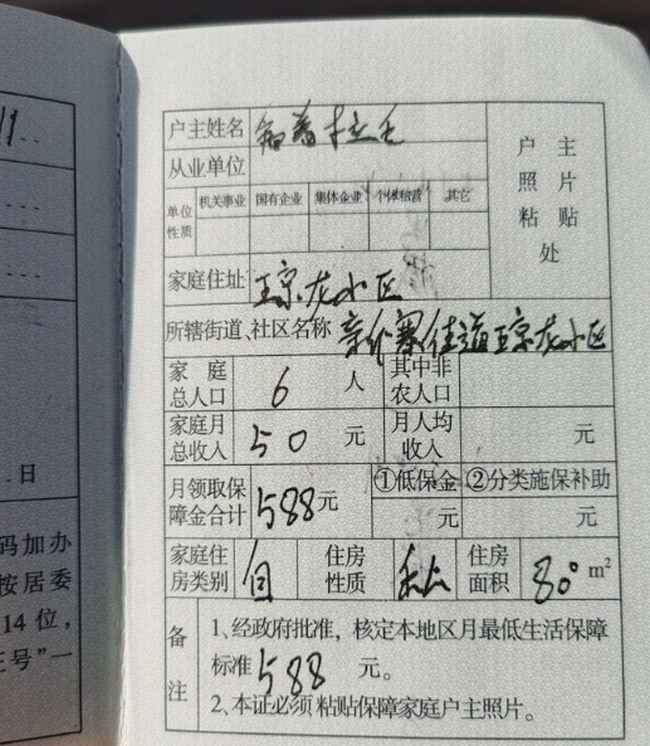 11
日
码加办
按居委
14位，
证号”一
户主姓名 拉毛
户主
照片
粘贴
处
从业单位
单位性质 机关事业 国有企业 集体企业 个体私营 其它
家庭住址 琼龙小区
所辖街道、社区名称 街道琼龙小区
家庭总人口 6 人 其中非农人口
家庭月总收入 50 元 月人均收入 元
月领取保障金合计 588元 ①低保金 元 ②分类施保补助 元
家庭住房类别 自 住房性质 私 住房面积 80 m²
备注
1、经政府批准，核定本地区月最低生活保障
标准588 元。
2、本证必须粘贴保障家庭户主照片。